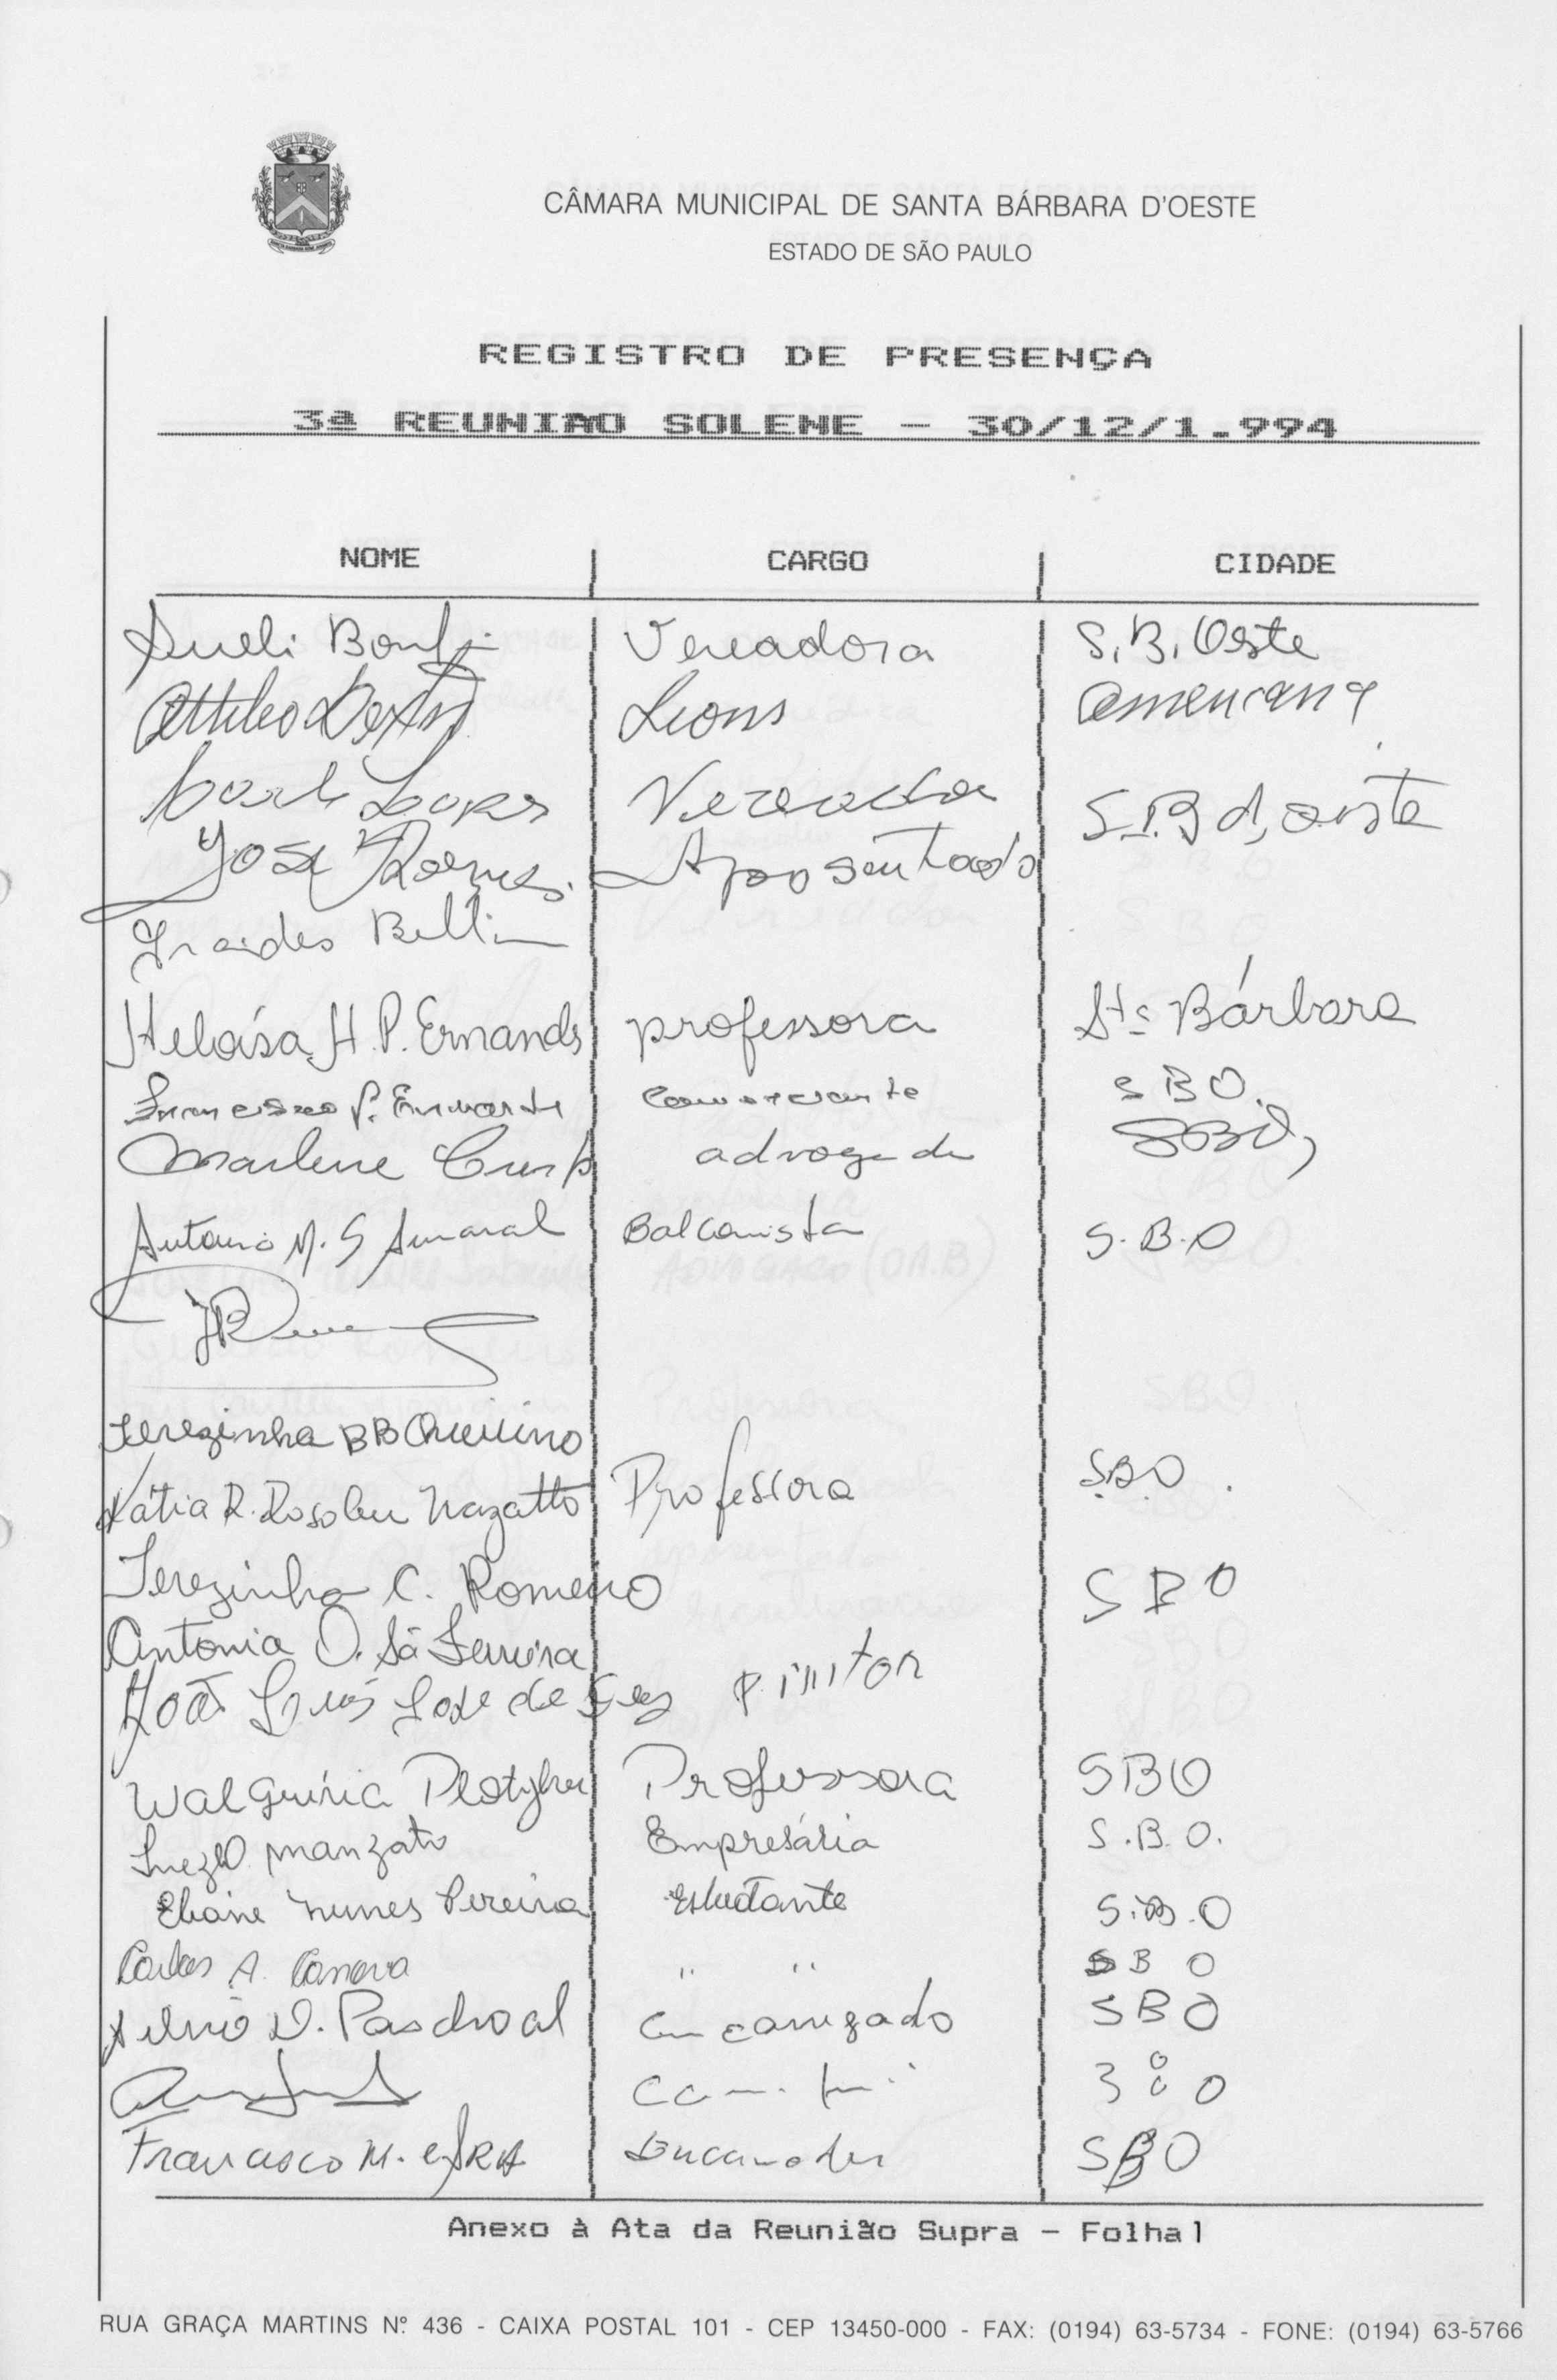 CÂMARA MUNICIPAL DE SANTA BÁRBARA D'OESTE
ESTADO DE SÃO PAULO
REGISTRO DE PRESENÇA
3ª REUNIÃO SOLENE - 30/12/1.994
NOME CARGO CIDADE
Sueli Vereadora S.B. Oeste
Attileo Lions Americana
Lopes Vereador S.B d'oeste
José Aposentado
Heloísa H. P. Ernandes professora Sta Bárbara
Francisco P. Comerciante SBO.
Marlene advogada SBO,
Antonio M. S Amaral Balconista S.B.O
Terezinha BB
Kátia R. Rosolen Nazatto Professora S.B.O.
Terezinha C. Romero SBO
Antonia O. Sá Ferreira
João Luís José de Pintor
Walquíria Professora SBO
Inez Manzato Empresária S.B.O.
Eliane Nunes Pereira Estudante S.B.O
Carlos A. Canova " " SBO
Silvio D. Paschoal Encarregado SBO
Francisco M. SBO
Anexo à Ata da Reunião Supra - Folha 1
RUA GRAÇA MARTINS Nº 436 - CAIXA POSTAL 101 - CEP 13450-000 - FAX: (0194) 63-5734 - FONE: (0194) 63-5766